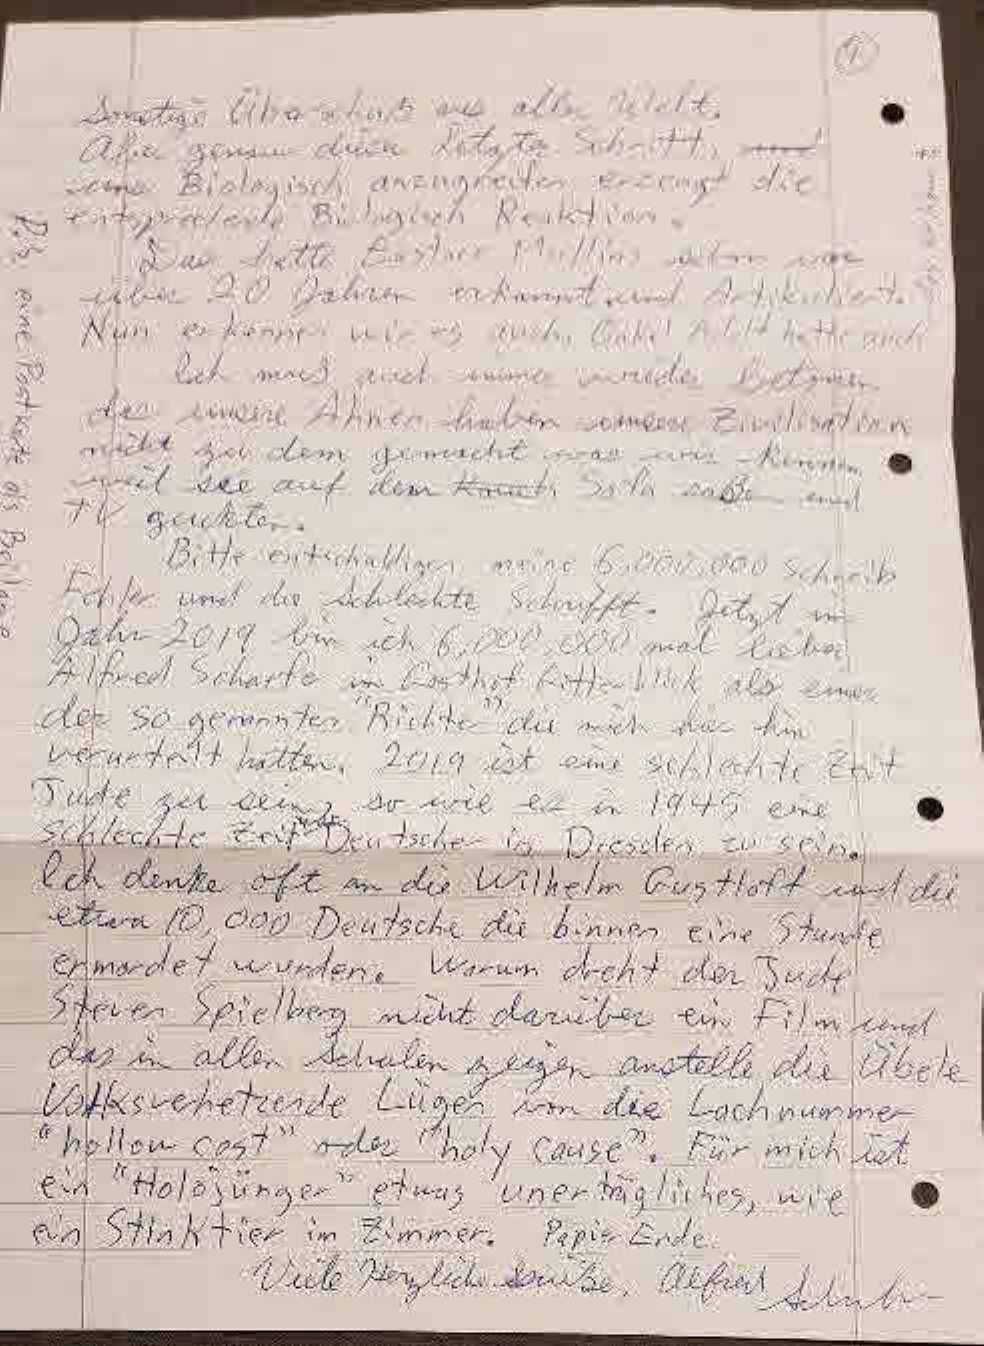 4
Sonstige Überschuß aus aller Welt.
Aber genau diese Letzte Schritt, und
uns Biologisch anzugreifen erzeugt die
entsprechende Biologisch Reaktion.
Das hatte Eustace Mullins schon vor
über 20 Jahren erkannt und Artikuliert.
Nun erkennen wir es auch. Onkel Adolf hatte auch
Ich mus auch immer wieder betonen
das unsere Ahnen haben unsere Zivilisation
nicht zu dem gemacht was wir kennen
weil sie auf dem Sofa saßen und
TV guckten.
Bitte entschuldigen meine 6,000,000 Schreib
Fehler und die schlechte Schrifft. Jetzt im
Jahr 2019 bin ich 6,000,000 mal lieber
Alfred Schaefer in Gasthof Gitterblick als einer
der so genannten "Richter" die mich hier hin
verurteilt hatten. 2019 ist eine schlechte Zeit
Jude zu sein, so wie es in 1945 eine
schlechte Zeit Deutscher in Dresden zu sein.
Ich denke oft an die Wilhelm Gustloff und die
etwa 10,000 Deutsche die binnen eine Stunde
ermordet wurden. Warum dreht der Jude
Steven Spielberg nicht darüber ein Film und
das in allen Schulen zeigen anstelle die Übele
Volksverhetzende Lügen von die Lachnummer
"hollow cost" oder "holy cause". Für mich ist
ein "Holojünger" etwas unerträgliches, wie
ein Stinktier im Zimmer. Papier Ende.
Viele Herzliche Grüße, Alfred
P.S. eine Postkarte als Beilage